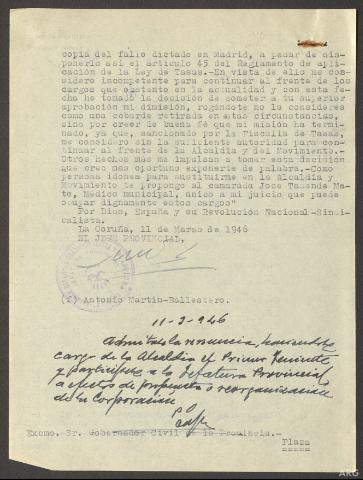 copia del fallo dictado en Madrid, a pesar de disponerlo así el artículo 45 del Reglamento de aplicación de la Ley de Tasas.-En vista de ello me considero incompetente para continuar al frente de los
cargos que ostento en la actualidad y con esta fecha he tomado la decisión de someter a tu superior
aprobación mi dimisión, rogándote no la consideres
como una cobarde retirada en estas circunstancias,
sino por creer de buena fé que mi misión ha terminado, ya que, sancionado por la Fiscalía de Tasas,
me considero sin la suficiente autoridad para continuar al frente de la Alcaldía y del Movimiento.-
Otros hechos más me impulsan a tomar esta decisión
que creo más oportuno exponerte de palabra.-Como
persona idónea para sustituirme en la Alcaldía y
Movimiento te propongo al camarada Jose Tasende Mato, Medico municipal, unico a mi juicio que puede
ocupar dignamente estos cargos"
Por Dios, España y su Revolución Nacional-Sindicalista.
La Coruña, 11 de Marzo de 1946
EL JEFE PROVINCIAL,
Antonio Martin-Ballestero.
11-3-946
Admítase la renuncia, haciendose
cargo de la Alcaldia el Primer Teniente
y participese a la Jefatura Provincial,
a efectos de propuesta o reorganización
de la Corporación
Excmo. Sr. Gobernador Civil de la Provincia.-
Plaza
ARG